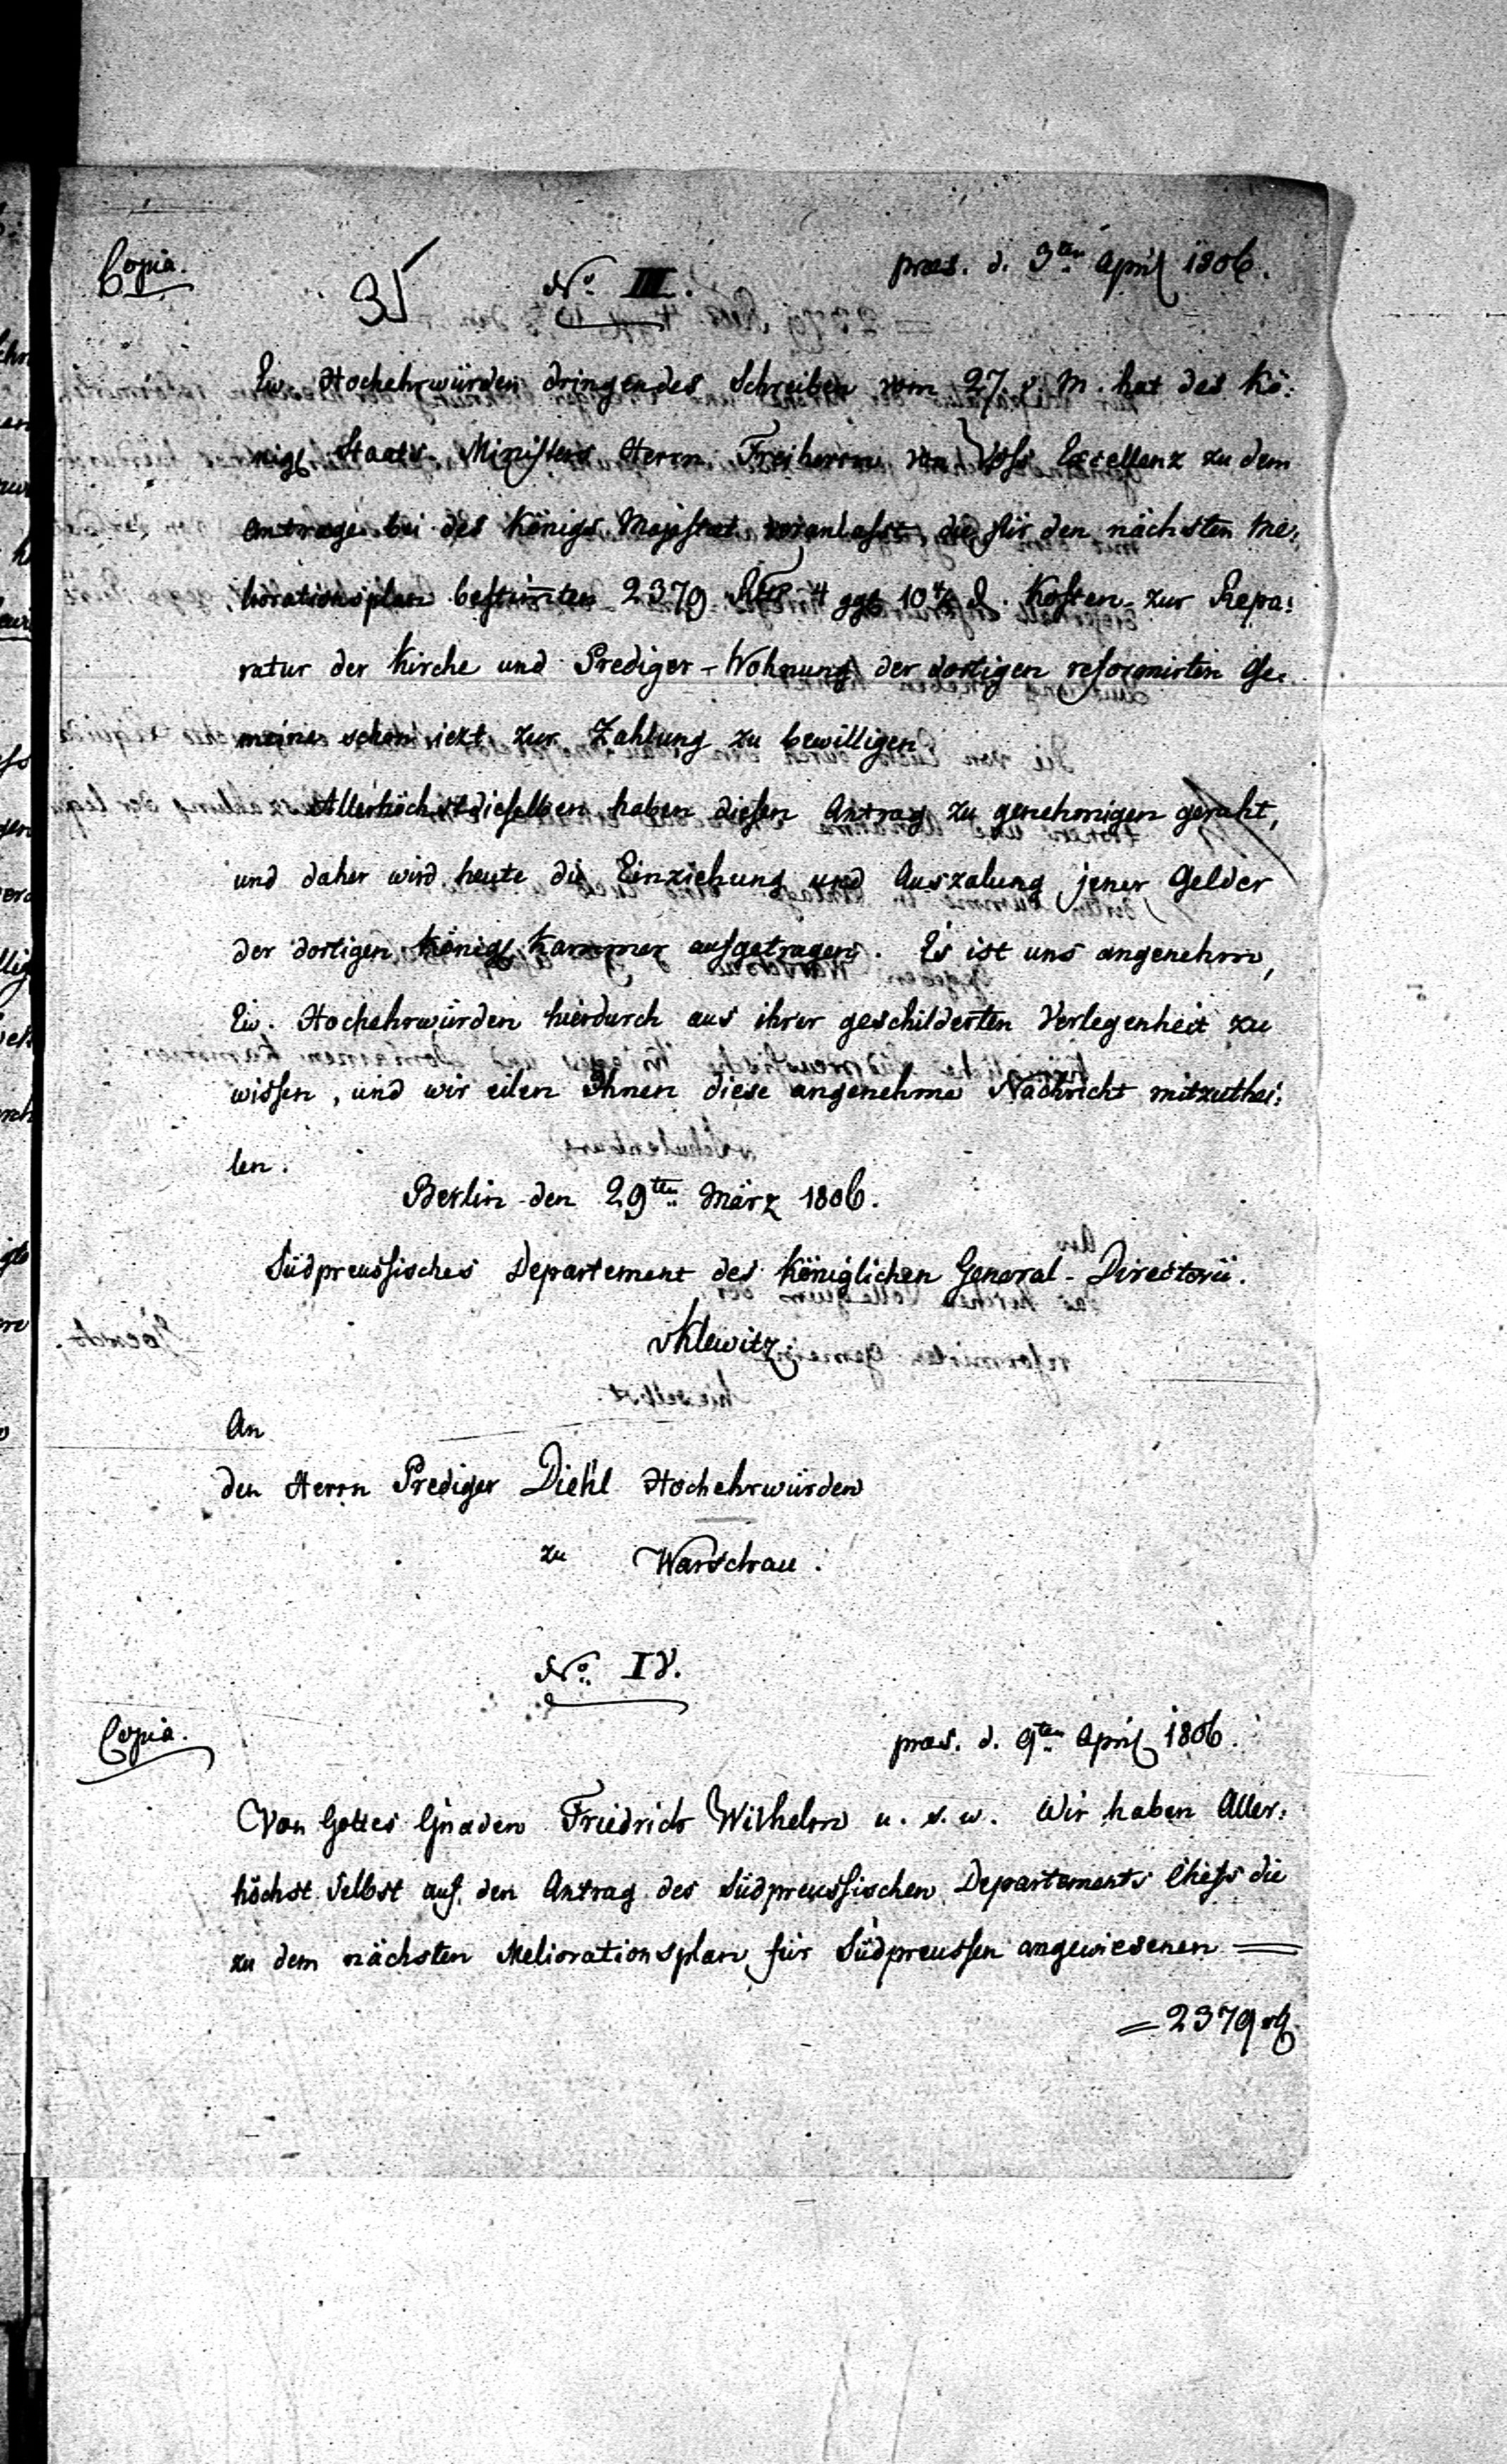 Copia.
35
No. III.
præs. d. 3ten April 1806.
Ew. Hochehrwürden dringendes Schreiben vom 27. v. M. hat des Kö:
nigl Staats-Ministers Herrn Freiherrn von Voss Excellenz zu dem
Antrage bei des Königs Majestaet veranlasst, die für den nächsten Me:
liorationsplan bestimten 2379 Rtlr 4 ggl 10 4/5 d. Kosten zur Repa:
ratur der Kirche und Prediger-Wohnung der dortigen reformirten Ge:
meine schon iezt zur Zahlung zu bewilligen
Allerhöchstdieselben haben diesen Antrag zu genehmigen geruht,
und daher wird heute die Einziehung und Auszalung jener Gelder
der dortigen Königl Kammer aufgetragen. Es ist uns angenehm,
Ew. Hochehrwürden hierdurch aus ihrer geschilderten Verlegenheit zu
wissen, und wir eilen Ihnen diese angenehme Nachricht mitzuthei:
len.
Berlin den 29ten März 1806.
Südpreussisches Departement des Königlichen General-Directorii.
vKlewitz
An
den Herrn Prediger Diehl Hochehrwürden
zu Warschau.
No. IV.
Copia.
præs. d. 9ten April 1806.
Von Gottes Gnaden Friedrich Wilhelm u. s. w. Wir haben Aller:
höchst Selbst auf den Antrag des Südpreussischen Departements Chefs die
zu dem nächsten Meliorationsplan für Südpreussen angewiesenen =
= 2379 rtl.